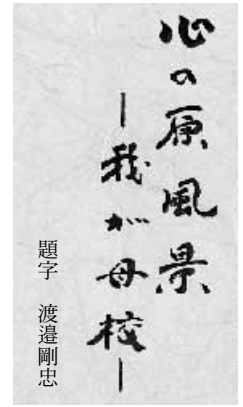 心の原風景
―我が母校―
題字　渡邉剛忠